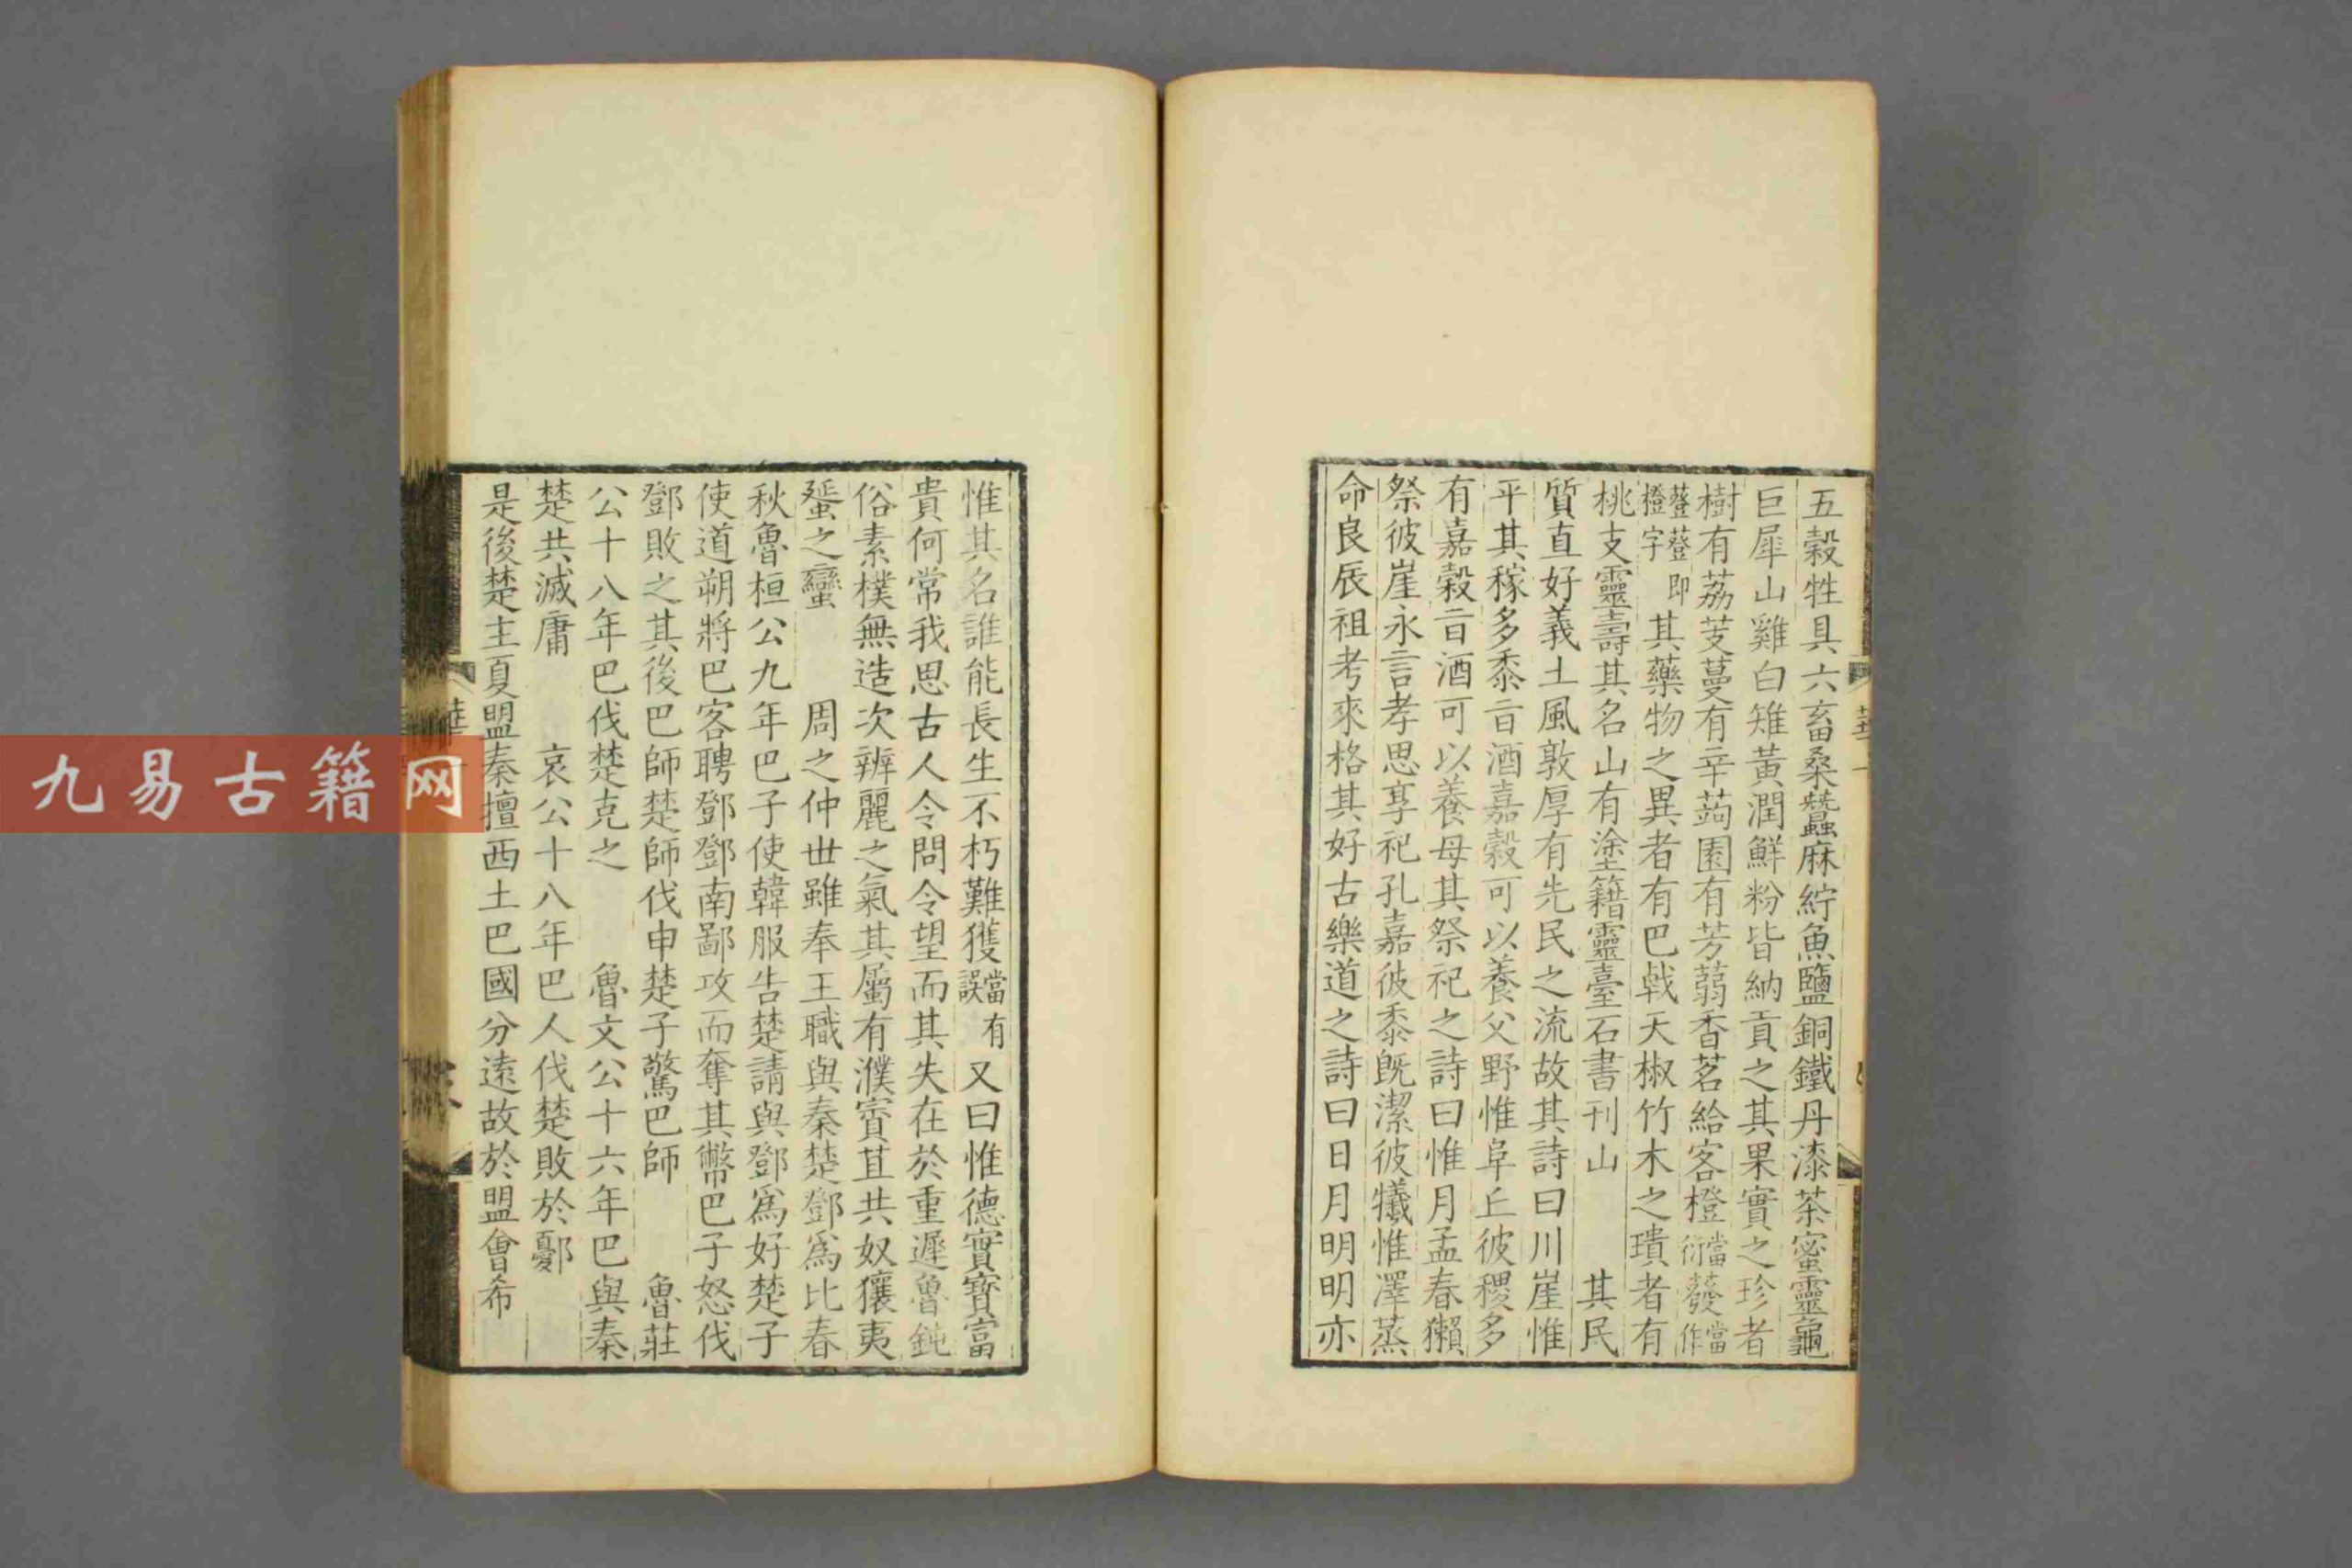 五穀牲具六畜桑蠶麻紵魚鹽銅鐵丹漆茶蜜靈龜
巨犀山雞白雉黃潤鮮粉皆納貢之其果實之珍者
樹有荔芰蔓有辛蒟園有芳蒻香茗給客橙當衍䕨當作
䕨蕟即橙字其藥物之異者有巴戟天椒竹木之璝者有
桃支靈壽其名山有塗籍靈臺石書刊山　其民
質直好義土風敦厚有先民之流故其詩曰川崖惟
平其稼多黍旨酒嘉穀可以養父野惟阜丘彼稷多
有嘉穀旨酒可以養母其祭祀之詩曰惟月孟春獺
祭彼崖永言孝思享祀孔嘉彼黍旣潔彼犧惟澤蒸
命良辰祖考來格其好古樂道之詩曰日月明明亦
惟其名誰能長生不朽難獲當有誤又曰惟德實寶富
貴何常我思古人令問令望而其失在於重遲魯鈍
俗素樸無造次辨麗之氣其屬有濮賨苴共奴獽夷
蜑之蠻　周之仲世雖奉王職與秦楚鄧爲比春
秋魯桓公九年巴子使韓服告楚請與鄧爲好楚子
使道朔將巴客聘鄧鄧南鄙攻而奪其幣巴子怒伐
鄧敗之其後巴師楚師伐申楚子驚巴師　魯莊
公十八年巴伐楚克之　魯文公十六年巴與秦
楚共滅庸　哀公十八年巴人伐楚敗於鄾
是後楚主夏盟秦擅西土巴國分遠故於盟會希
九易古籍网